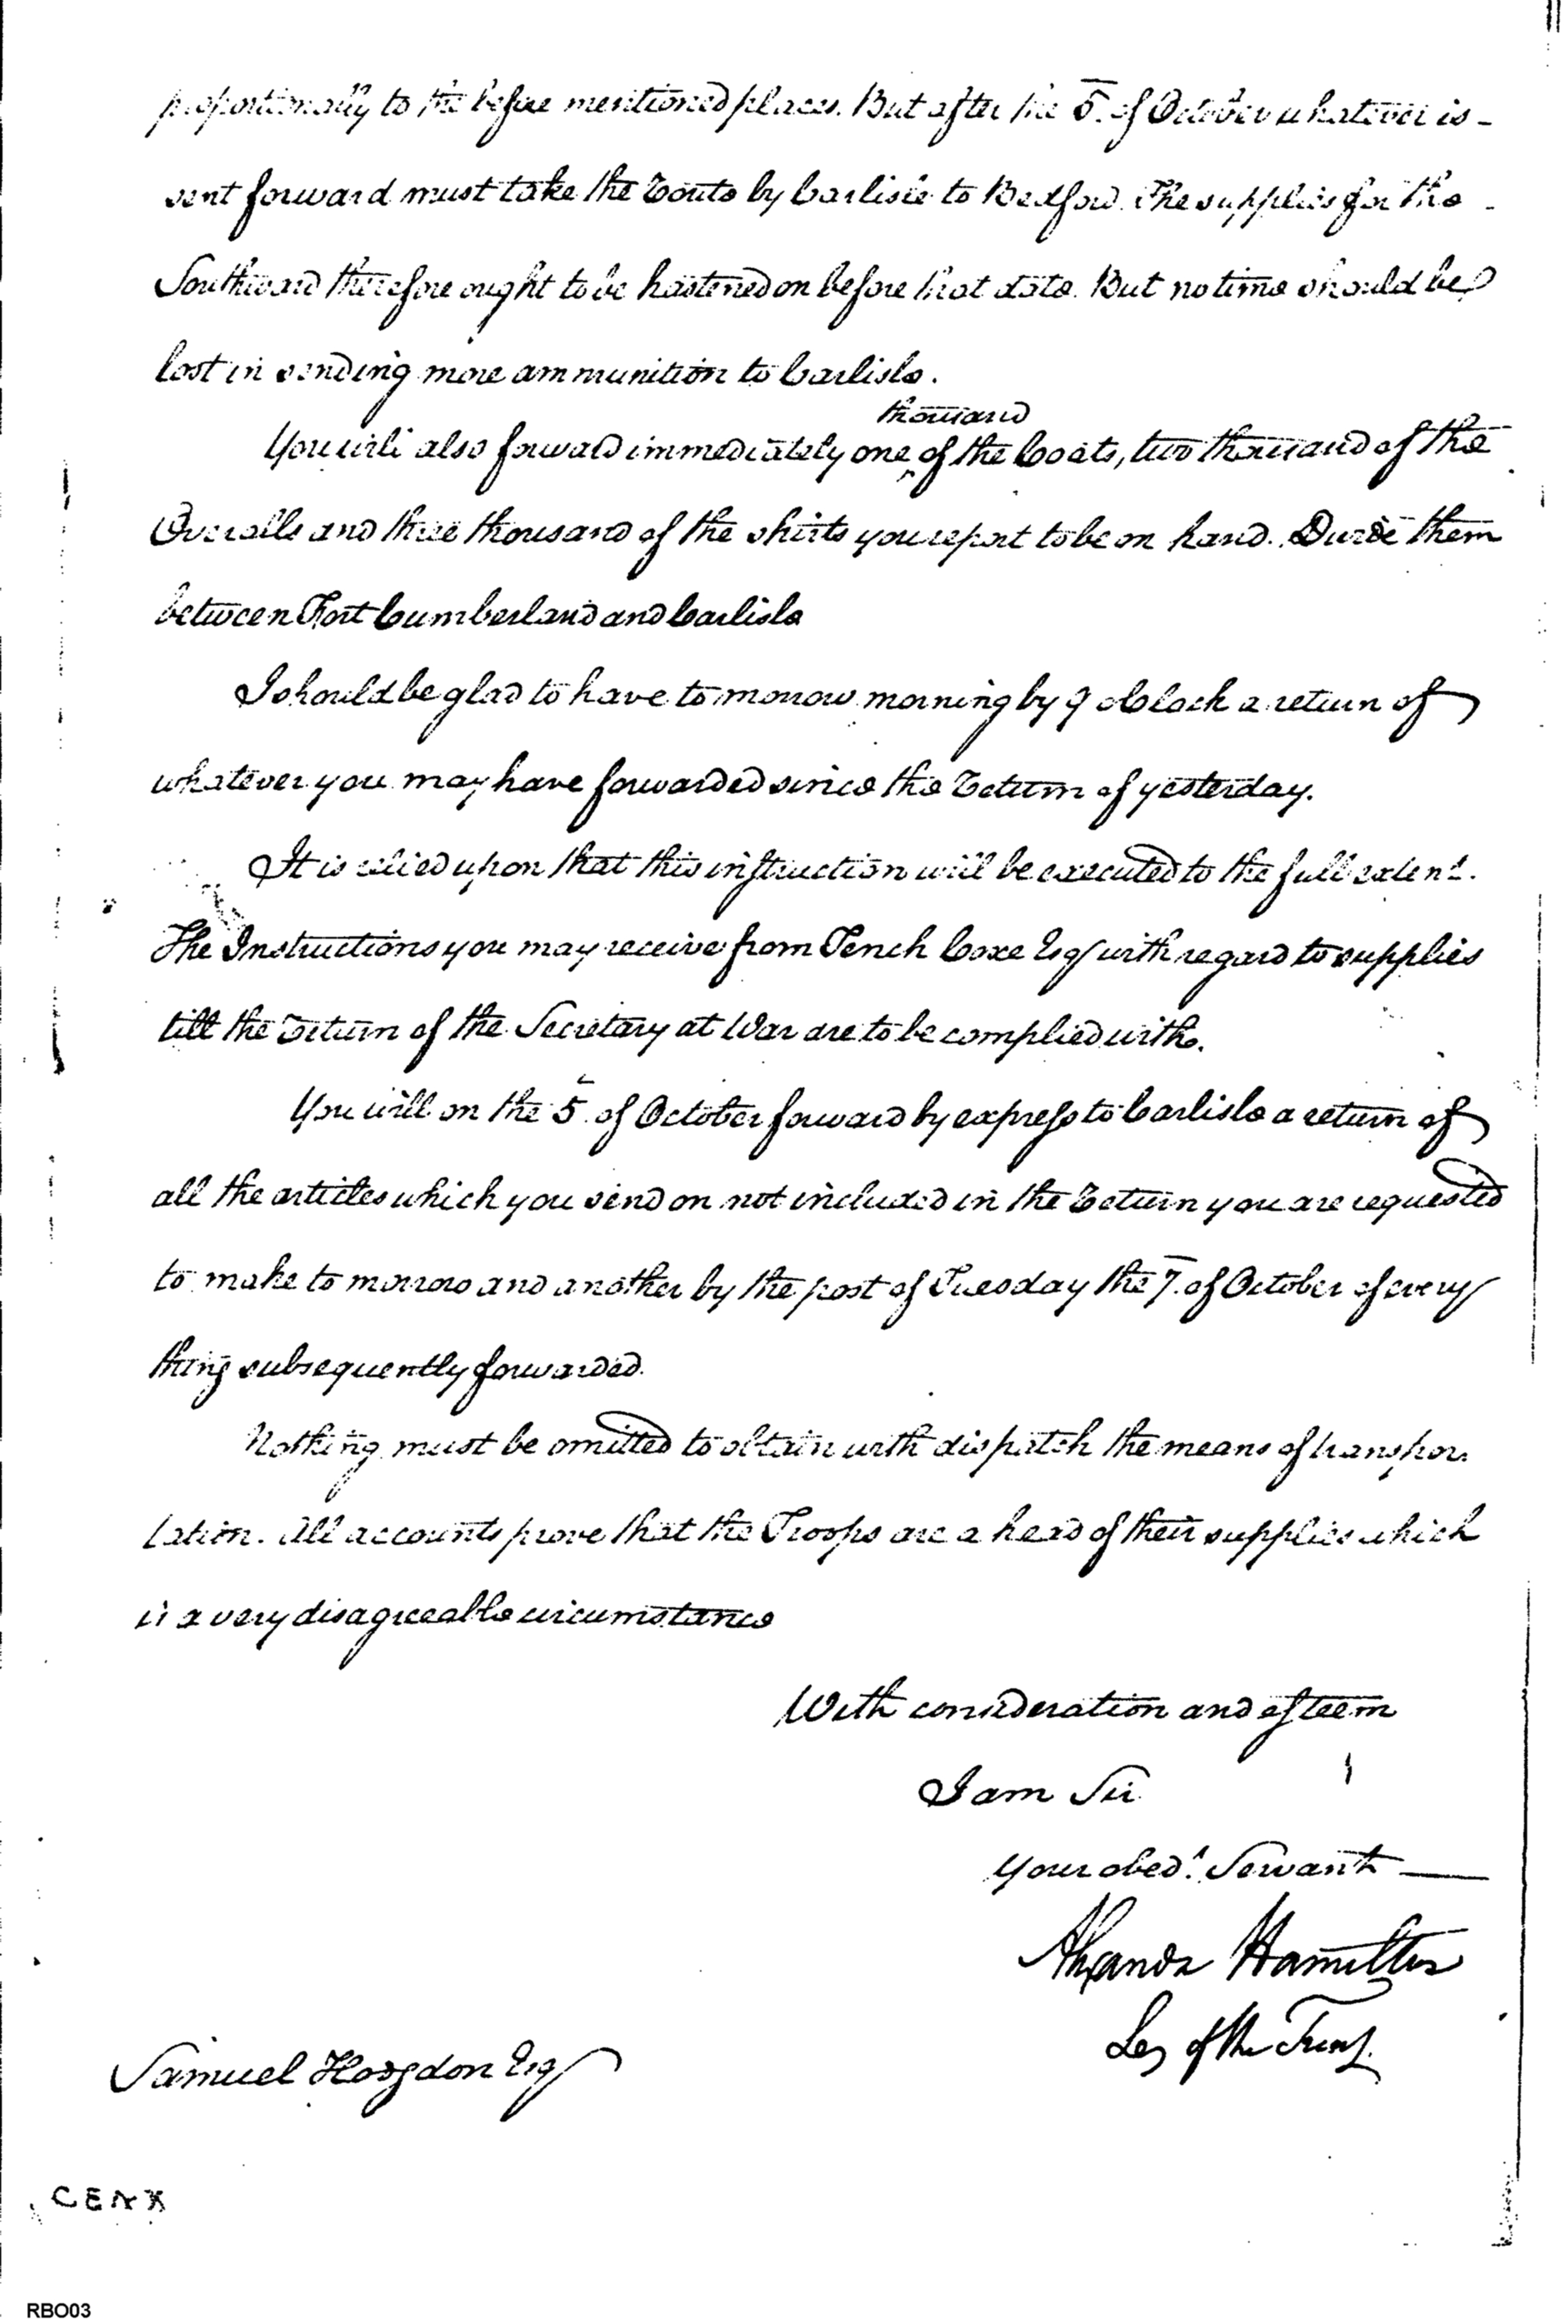 proportionally to the before mentioned places. But after the 5. of October whatever is -
sent forward must take the route by Carlisle to Bedford. The supplies for the -
Southward therefore ought to be hastened on before that date. But no time should be
lost in sending more ammunition to Carlisle.
thousand
You will also forward immediately one ^ of the Coats, two thousand of the
Overalls and three thousand of the shirts you report to be on hand. Divide them
between Fort Cumberland and Carlisle
I should be glad to have to morrow morning by 9 oClock a return of
whatever you may have forwarded since the return of yesterday.
It is relied upon that this instruction will be executed to the full extent.
The Instructions you may receive from Tench Coxe Esq with regard to supplies
till the return of the Secretary at War are to be complied with.
You will on the 5. of October forward by express to Carlisle a return of
all the articles which you send on not included in the return you are requested
to make to morrow and another by the post of Tuesday the 7. of October of every
thing subsequently forwarded.
Nothing must be omitted to obtain with dispatch the means of transpor
tation. All accounts prove that the Troops are a head of their supplies which
is a very disagreeable circumstance
With consideration and esteem
I am Sir
Your obedt. Servant
Alexander Hamilton
Sey of the Treasy.
Samuel Hodgdon Esq
RBO03